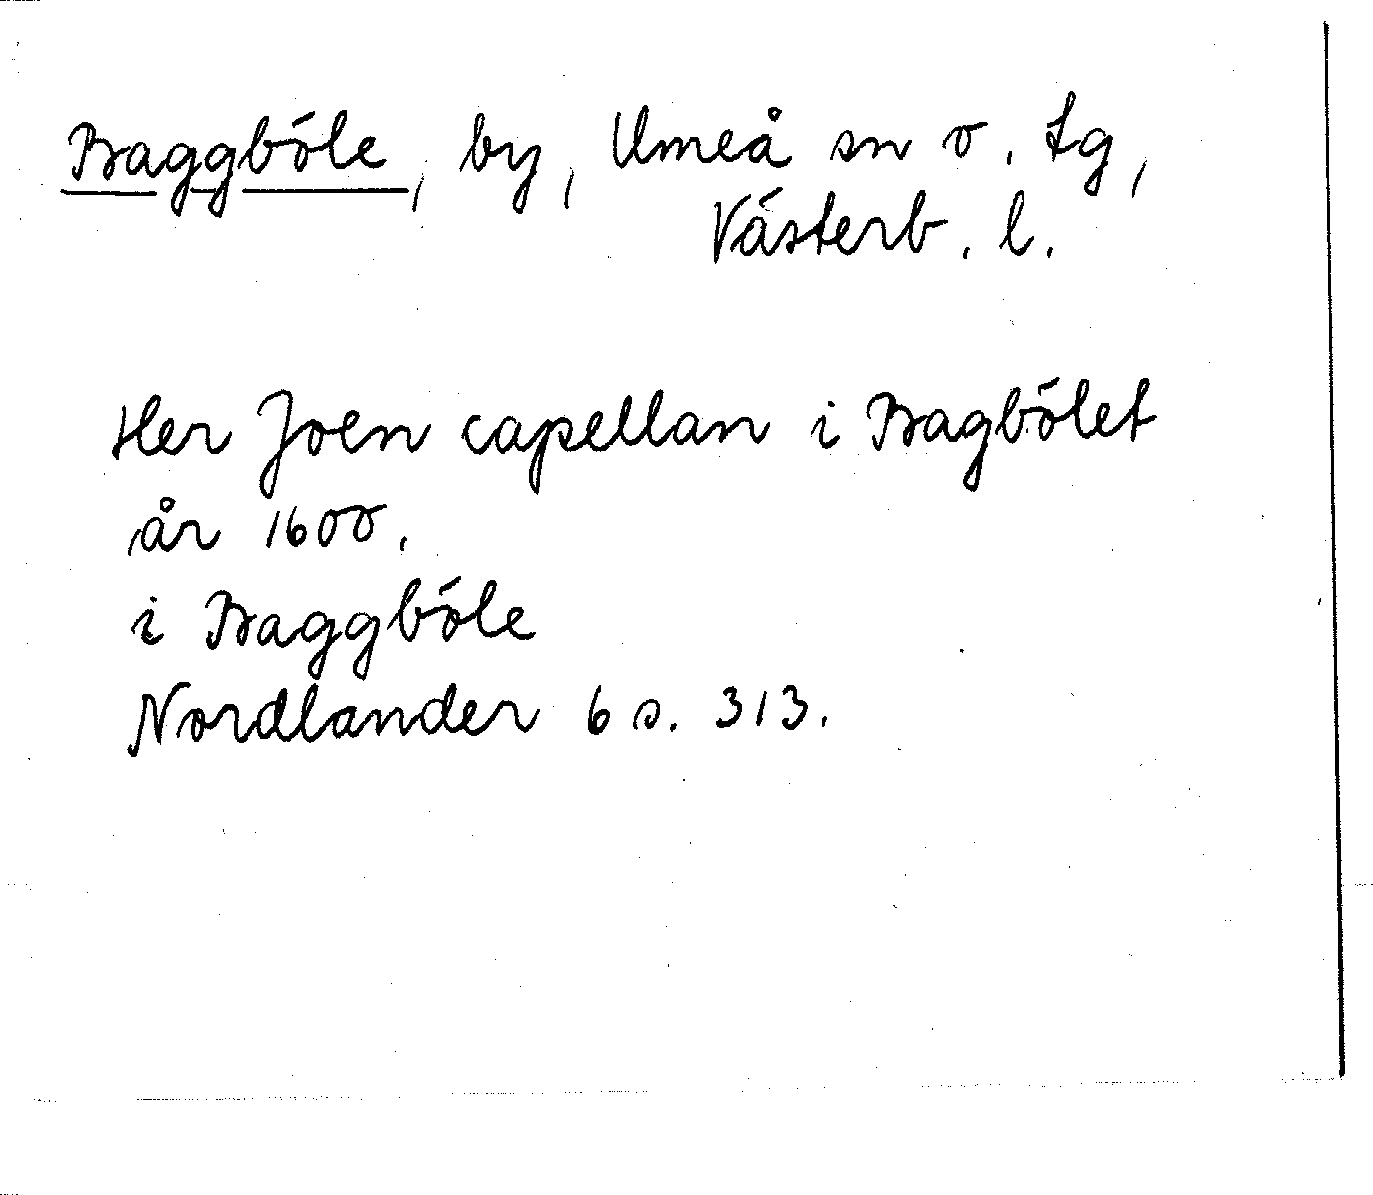 Baggböle, by, Umeå sn o. tg,
Västerb. l.
Her Joen capellan i Bagbölet
år 1600.
i Baggböle
Nordlander 6 s. 313.